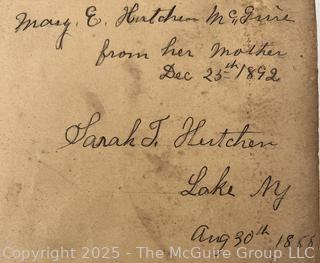 Mary. E. Hutchen McGuire
from her Mother
Dec 25th 1892
Sarah T. Hutchen
Lake NY
Aug 30th 1858
Copyright 2025 - The McGuire Group LLC